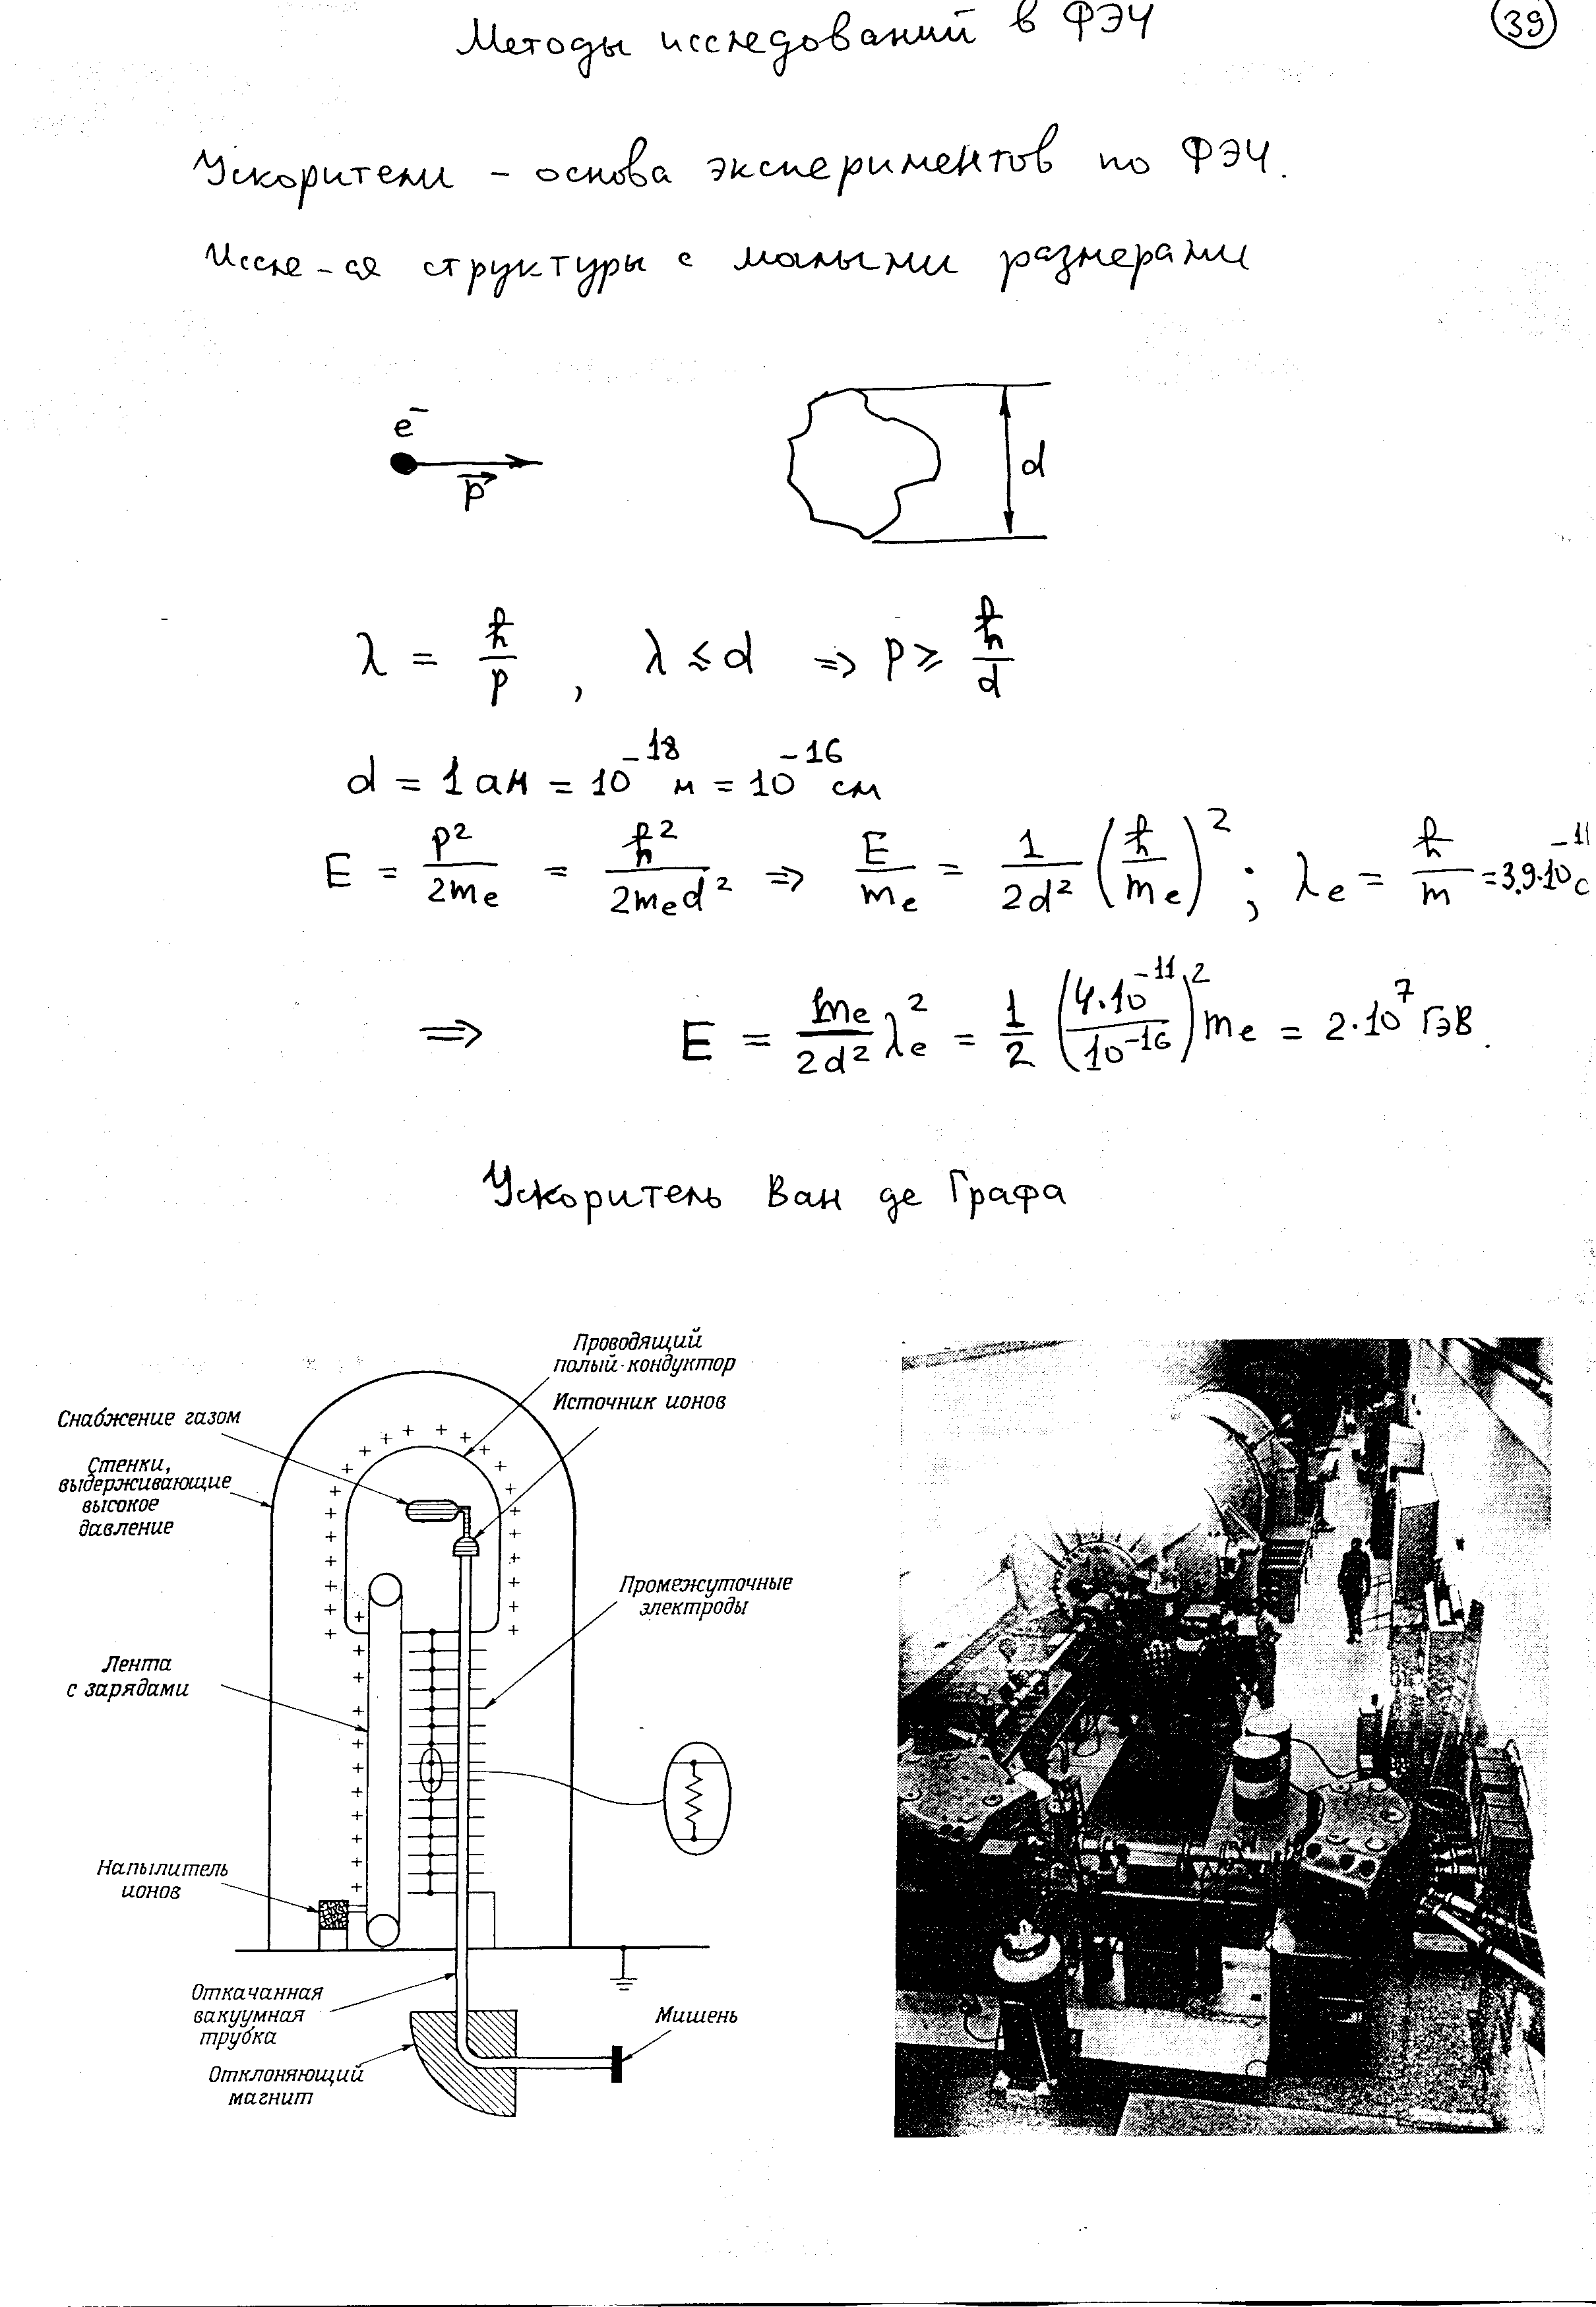 Методы исследований в ФЭЧ
39
Ускорители – основа экспериментов по ФЭЧ.
Иссле-ся структуры с малыми размерами
e⁻
p⃗
d
λ = ħ/p , λ ≤ d ⇒ p ≥ ħ/d
d = 1 ам = 10⁻¹⁸ м = 10⁻¹⁶ см
E = p²/2mₑ = ħ²/2mₑd² ⇒ E/mₑ = 1/2d² (ħ/mₑ)² ; λₑ = ħ/m = 3,9·10⁻¹¹ с
⇒ E = mₑ/2d² λₑ² = 1/2 (4·10⁻¹¹/10⁻¹⁶)² mₑ = 2·10⁷ ГэВ.
Ускоритель Ван де Графа
Проводящий
полый кондуктор
Источник ионов
Снабжение газом
Стенки,
выдерживающие
высокое
давление
Промежуточные
электроды
Лента
с зарядами
Напылитель
ионов
Откачанная
вакуумная
трубка
Мишень
Отклоняющий
магнит